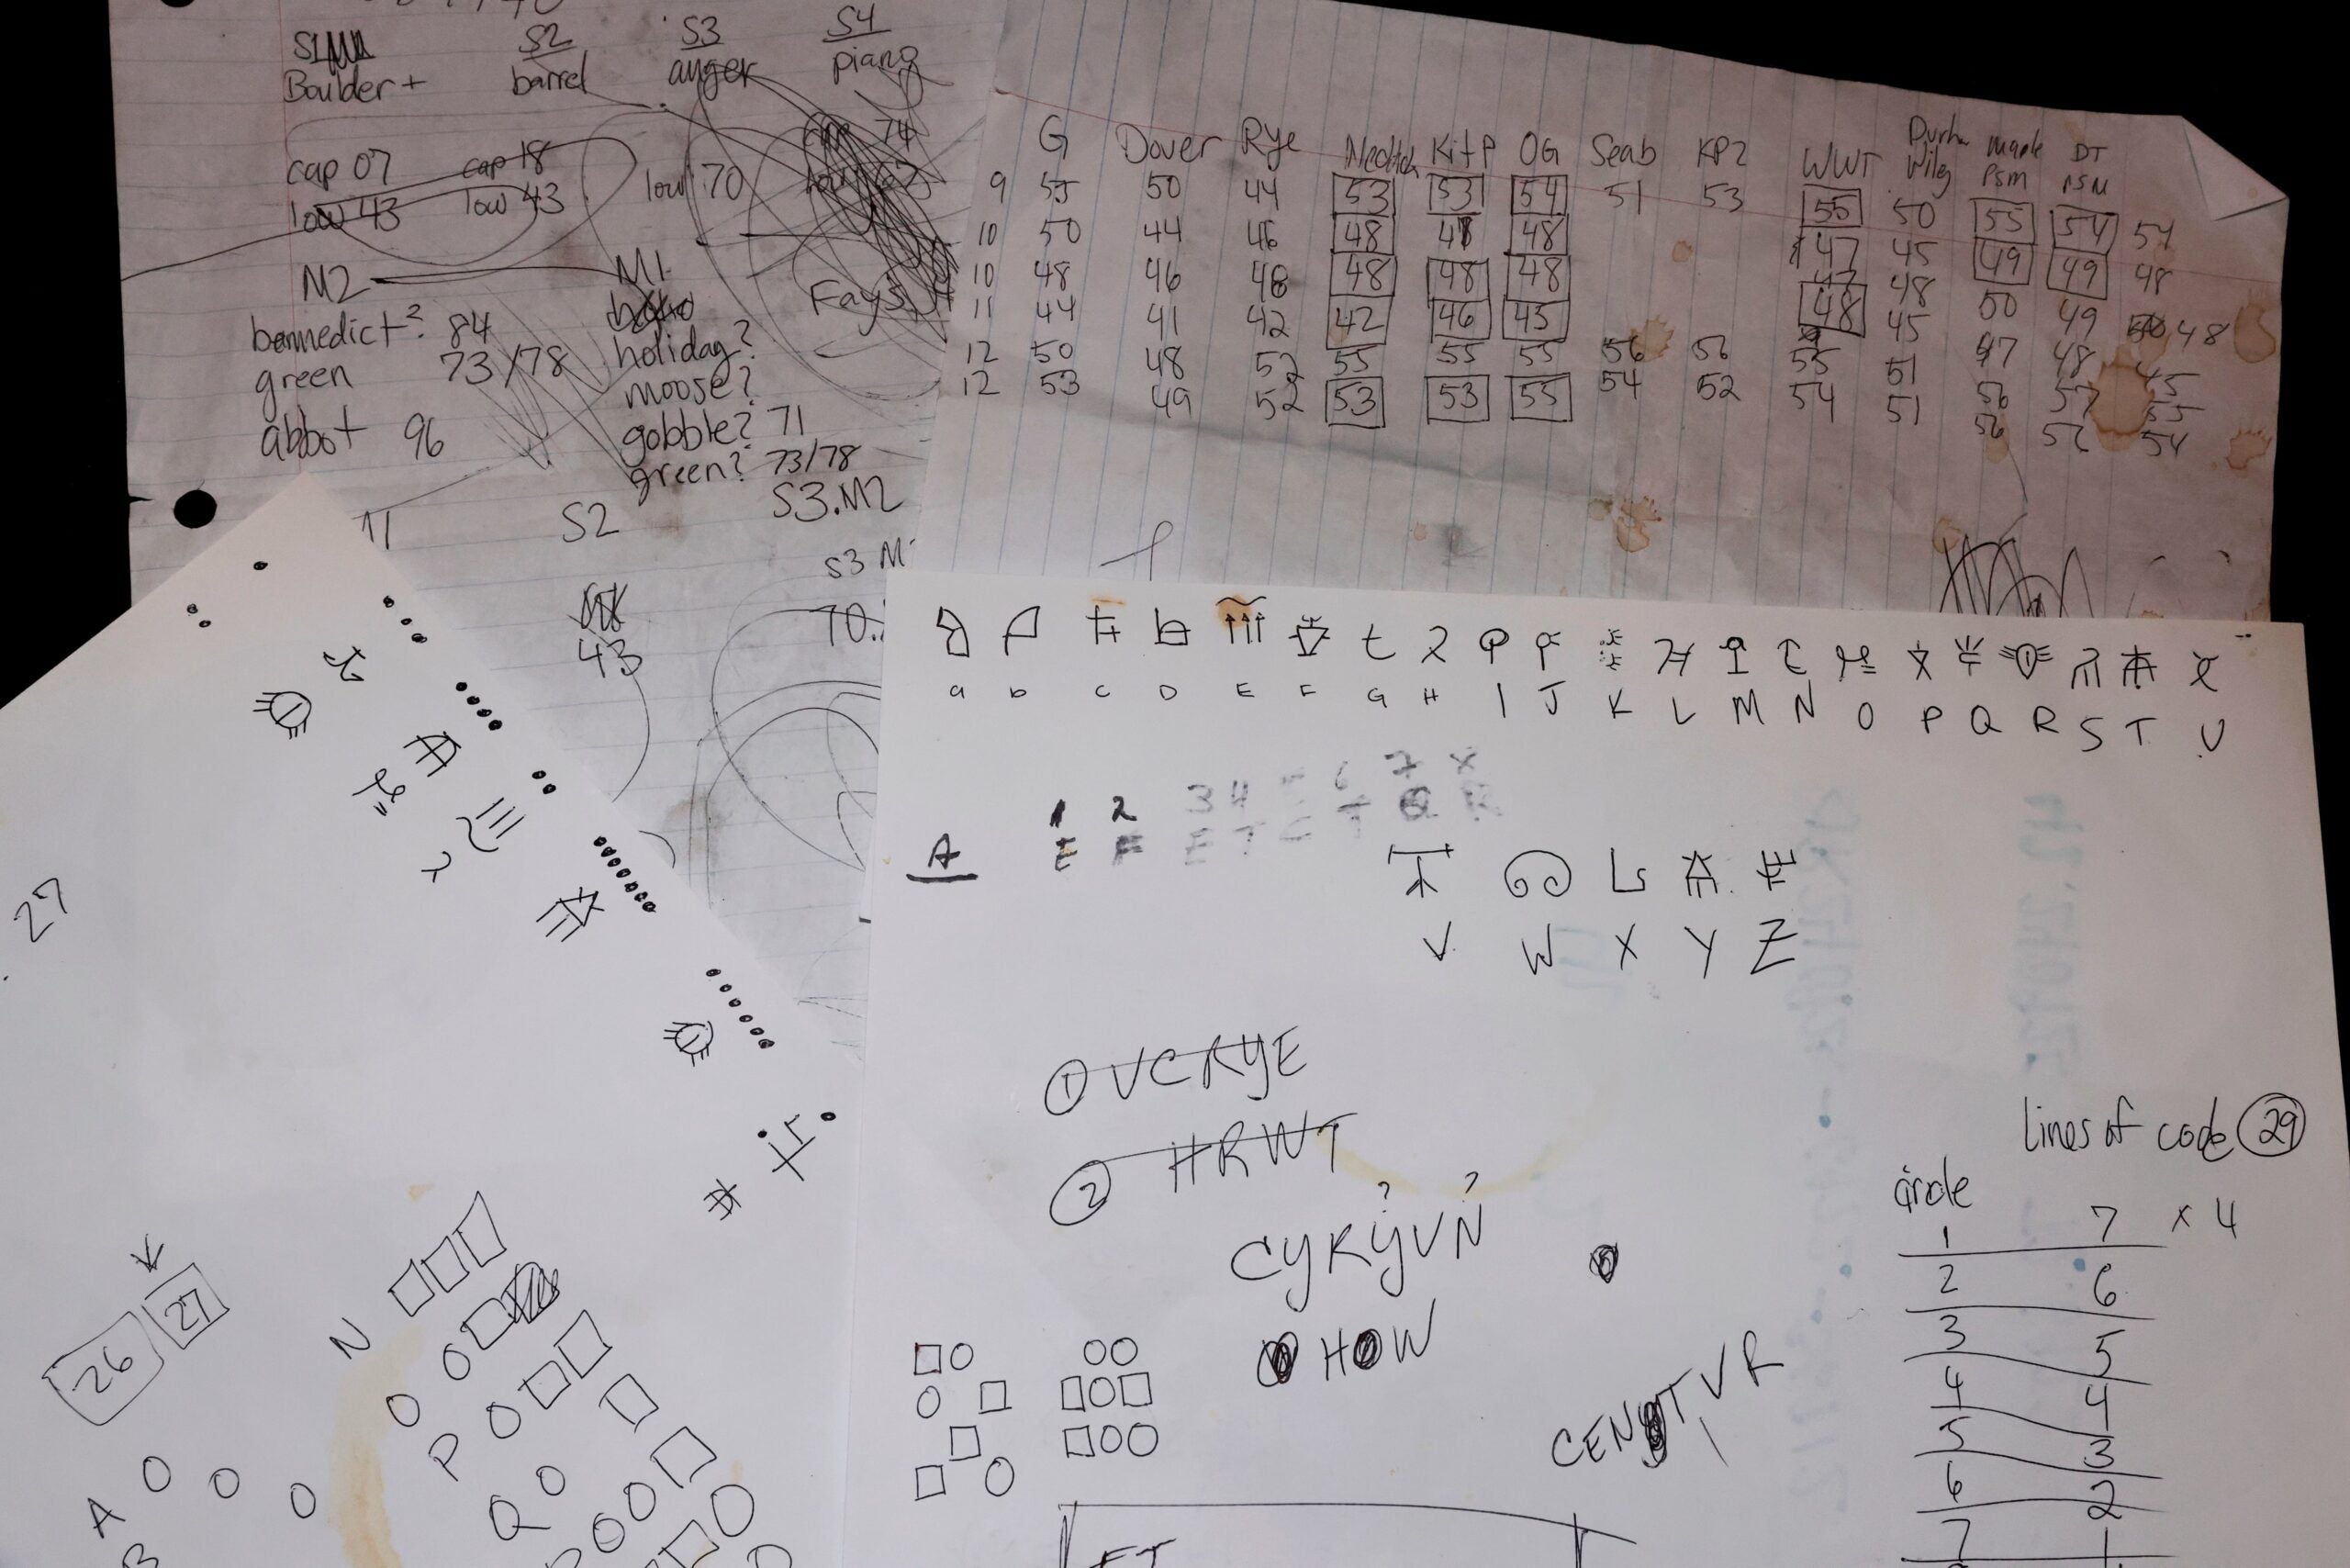 S1
S2
S3
S4
Boulder+
barrel
anger
piano
cap 07
cap 18
74
low 43
low 43
low 70
M2
M1
Fays
bennedict? 84
holiday?
green 73/78
moose?
abbot 96
gobble? 71
green? 73/78
S2
S3.M2
43
70.
G Dover Rye KitP OG Seab KP2 WWT Maple PSM DT PSM
9 55 50 44 53 53 54 51 53 55 50 55 54 54
10 50 44 46 48 48 48 47 45 49 49 48
10 48 46 48 48 48 48 47 48 50 49 48
11 44 41 42 42 46 45 48 45 47 48 45
12 50 48 52 55 55 55 56 56 55 51 56 57 55
12 53 49 52 53 53 55 54 52 54 51 56 52 54
a b C D E F G H I J K L M N O P Q R S T U
1 2 3 4 6 7 X
A
E F E T T Q R
V W X Y Z
① VCRYE
② HRWT
? ?
CYRYVN
HOW
CENTVR
lines of code 29
circle
1 7 x 4
2 6
3 5
4 4
5 3
6 2
7 1
27
26 27
N
O
P
Q
A
B